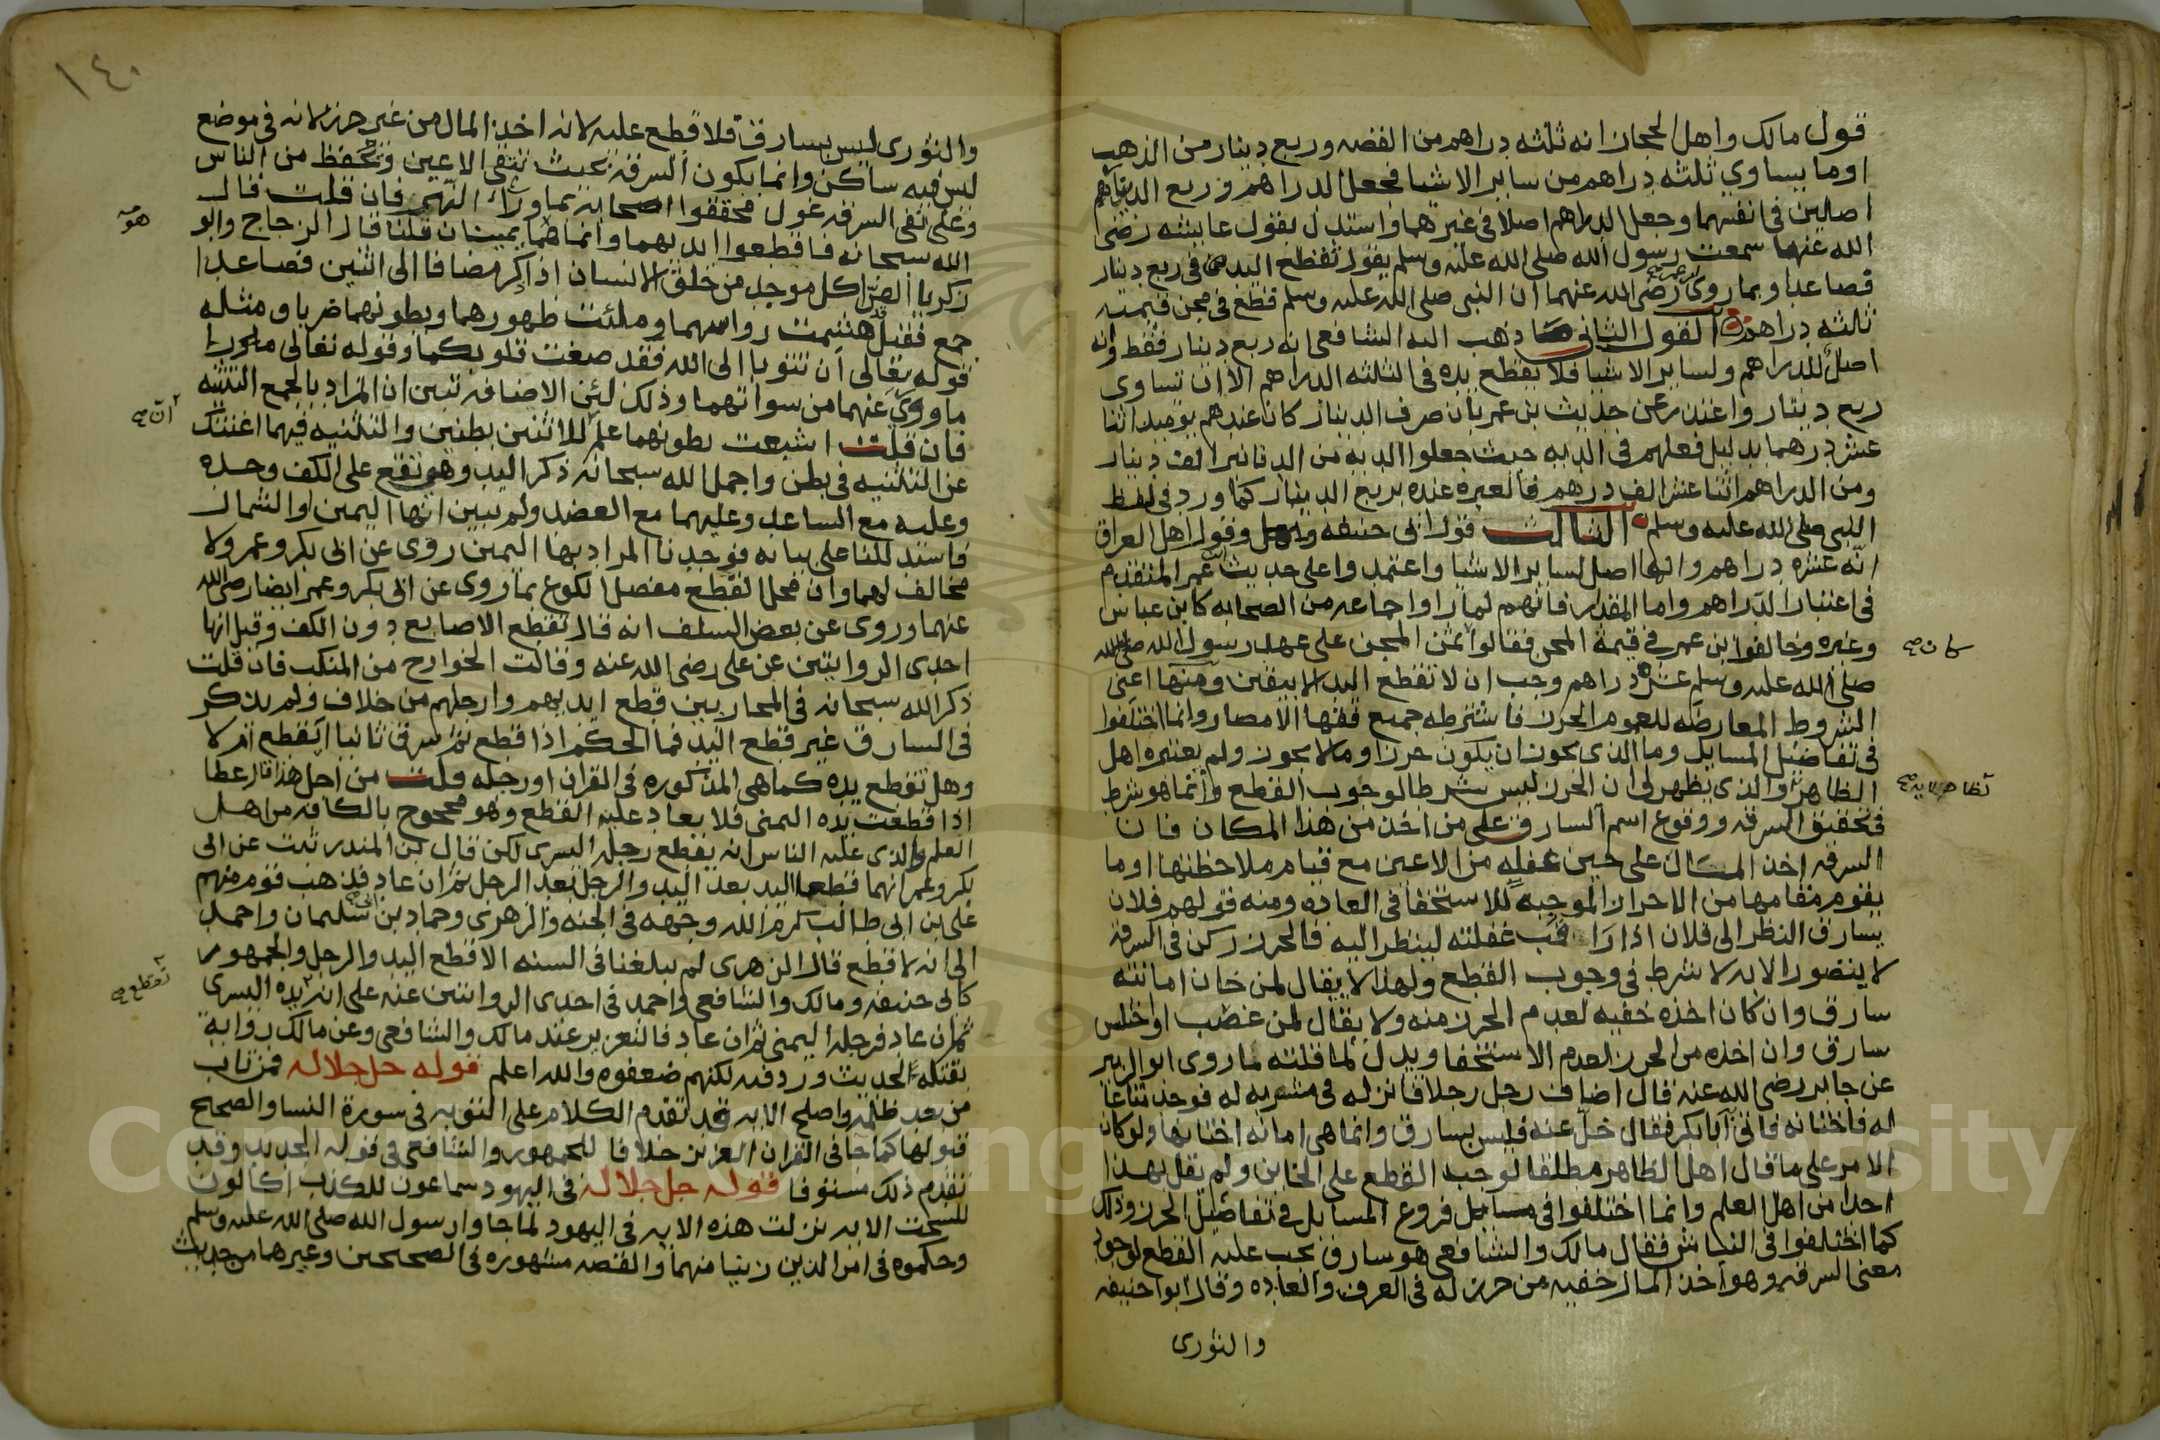 قول مالك واهل الحجاز انه ثلثه دراهم من الفضه وربع دينار من الذهب
اوما يساوي ثلثه دراهم من ساير الاشيا فجعل الدراهم وربع الدينار
اصلين في انفسهما وجعل الدراهم اصلا في غيرهما واستدل بقول عايشه رضي
الله عنها سمعت رسول الله صلى الله عليه وسلم يقول تقطع اليد في ربع دينار
فصاعدا وبما روى رضي الله عنهما ان النبي صلى الله عليه وسلم قطع في مجن قيمته
ثلثه دراهم القول الثاني ذهب اليه الشافعي انه ربع دينار فقط وانه
اصل للدراهم ولساير الاشيا فلا يقطع يده في الثلثه الدراهم الا ان تساوى
ربع دينار واعتذر عن حديث بن عمر بان صرف الدينار كان عندهم يوميذ اثنا
عشر درهما بدليل فعلهم في الديه حيث جعلوا الديه من الدنانير الف دينار
ومن الدراهم اثنا عشر الف درهم فالعبره عنده بربع الدينار كما ورد في لفظ
النبي صلى الله عليه وسلم الثالث قول ابى حنيفه وقول اهل العراق
انه عشره دراهم وانها اصل لساير الاشيا واعتمدوا على حديث عمر المتقدم
في اعتبار الدراهم واما المقدار فانهم لما راوا جماعه من الصحابه كابن عباس
وغيره وخالفوا بن عمر في قيمة المجن فقالوا ثمن المجن على عهد رسول الله
كان صح
صلى الله عليه وسلم عشره دراهم وجب ان لا تقطع اليد الا بيقين ومنها اعنى
الشروط المعارضه للعموم الحرز فاشترطه جميع فقها الامصار وانما اختلفوا
في تفاصيل المسايل وما الذى يجوز ان يكون حرزا وما لا يجوز ولم يعتبره اهل
الظاهر والذى يظهر لى ان الحرز ليس شرطا لوجوب القطع وانما هو شرط
في تحقيق السرقه ووقوع اسم السارق على من اخذ من هذا المكان فان
السرقه اخذ المال على حين غفله من الاعين مع قيام ملاحظتها اوما
يقوم مقامها من الاحراز الموجبه للاستخفا في العاده ومنه قولهم فلان
يسارق النظر الى فلان اذا غفلته لينظر اليه فالحرز ركن في السرقه
لا يتصور الا به لا شرط في وجوب القطع ولهذا لا يقال لمن خان امانته
سارق وان كان اخذه خفيه لعدم الحرز منه ولا يقال لمن غصب او اختلس
سارق وان اخذه من الحرز لعدم الاستخفا ويدل لما قلته لما روى ابو الزبير
عن جابر رضي الله عنه قال اضاف رجل رجلا فانزله في مشربه له فوجد متاعا
له فاختانه فاتى ابا بكر فقال خل عنه فليس بسارق وانما هى امانه اختانها ولو كان
الامر على ما قال اهل الظاهر مطلقا لوجب القطع على الخاين ولم يقل بهذا
احد من اهل العلم وانما اختلفوا في مسايل فروع المسايل في تفاصيل الحرز وذلك
كما اختلفوا في النباش فقال مالك والشافعي هو سارق يجب عليه القطع لوجود
معنى السرقه وهو اخذ المال خفيه من حرز له في العرف والعاده وقال ابو حنيفه
والثورى
١٤٠
والثورى ليس بسارق فلا قطع عليه لانه اخذ المال من غير حرز لانه في موضع
ليس فيه ساكن وانما يكون السرقه بحيث تتقى الاعين ويتحفظ من الناس
وعلى نفى السرقه عول محققوا اصحابه بما وراء النهر فان قلت قال
هو
الله سبحانه فاقطعوا ايديهما وانما هما يمينان قلنا قال الزجاج وابو
زكريا الفرا كل موجد من خلق الانسان اذا ذكر مضافا الى اثنين فصاعدا
جمع فقيل هشمت رواسهما وملئت ظهورهما وبطونهما ضربا ومثله
قوله تعالى ان تتوبا الى الله فقد صغت قلوبكما وقوله تعالى
ما وورى عنهما من سواتهما وذلك لئن الاضافه تبين ان المراد بالجمع التثنيه
فان قلت اشبعت بطونهما علم للاثنين بطنين والتثنيه فيهما اغنتك
عن التثنيه في بطن واجمل الله سبحانه ذكر اليد وهى تقع على الكف وحده
وعليه مع الساعد وعليهما مع العضد ولم يبين انها اليمين او الشمال
فاستدللنا على بيانه فوجدنا المراد بها اليمين روى عن ابى بكر وعمر ولا
مخالف لهما وان محل القطع مفصل الكوع بما روى عن ابى بكر وعمر ايضا رضي الله
عنهما وروى عن بعض السلف انه قال تقطع الاصابع دون الكف وقيل انها
احدى الروايتين عن على رضي الله عنه وقالت الخوارج من المنكب فان قلت
ذكر الله سبحانه في المحاربين قطع ايديهم وارجلهم من خلاف ولم يذكر
في السارق غير قطع اليد فما الحكم اذا قطع ثم سرق ثانيا ايقطع ام لا
وهل تقطع يده كما هى المذكوره في القران او رجله قلت من اجل هذا قال عطا
اذا قطعت يده اليمنى فلا يعاد عليه القطع وهو محجوج بالكافه من اهل
العلم والذى عليه الناس انه يقطع رجله اليسرى لكن قال بن المنذر ثبت عن ابى
بكر وعمر انهما قطعا اليد بعد اليد والرجل بعد الرجل ثم ان عاد فذهب قوم منهم
على بن ابى طالب كرم الله وجهه في الجنه والزهرى وحماد بن سليمان واحمد
الى انه لا قطع قال الزهرى لم يبلغنا في السنه الا قطع اليد والرجل والجمهور
كابى حنيفه ومالك والشافعي واحمد في احدى الروايتين عنه على انه يده اليسرى
تقطع صح
ثم ان عاد فرجله اليمنى ثم ان عاد فالتعزير عند مالك والشافعى وعن مالك روايه
بقتله الحديث ورد فيه لكنهم ضعفوه والله اعلم قوله جل جلاله فمن تاب
من بعد ظلمه واصلح الايه قد تقدم الكلام على التوبه في سورة النسا والصحيح
قبولها كما جا في القران العزيز خلافا للجمهور والشافعي في قوله الجديد وقد
تقدم ذلك مستوفا قوله جل جلاله في اليهود سماعون للكذب اكالون
للسحت الايه نزلت هذه الايه في اليهود لما جاوا رسول الله صلى الله عليه وسلم
وحكموه في امر الذين زنيا منهما والقصه مشهوره في الصحيحين وغيرهما من حديث